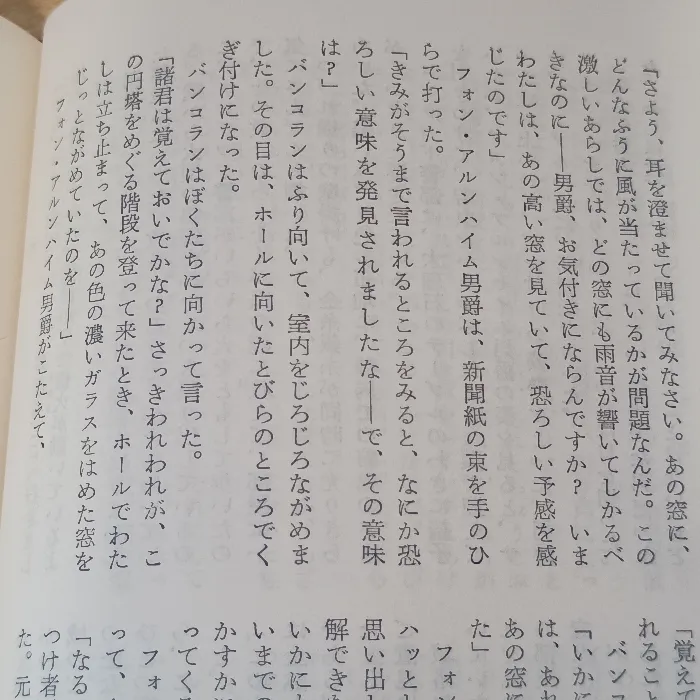 「さよう、耳を澄ませて聞いてみなさい。あの窓に、
どんなふうに風が当たっているかが問題なんだ。この
激しいあらしでは、どの窓にも雨音が響いてしかるべ
きなのに――男爵、お気付きにならんですか？　いま
わたしは、あの高い窓を見ていて、恐ろしい予感を感
じたのです」
フォン・アルンハイム男爵は、新聞紙の束を手のひ
らで打った。
「きみがそうまで言われるところをみると、なにか恐
ろしい意味を発見されましたな――で、その意味
は？」
バンコランはふり向いて、室内をじろじろながめま
した。その目は、ホールに向いたとびらのところでく
ぎ付けになった。
バンコランはぼくたちに向かって言った。
「諸君は覚えておいでかな？」さっきわれわれが、こ
の円塔をめぐる階段を登って来たとき、ホールでわた
しは立ち止まって、あの色の濃いガラスをはめた窓を
じっとながめていたのを――」
フォン・アルンハイム男爵がこたえて、
「覚え
れるこ
バン
「いか
は、あれ
あの窓に
た」
フォ
ハッと
思い出
解でき
いかに
いまで
かすか
ってく
フォ
って、
「なる
つけ者
た。元